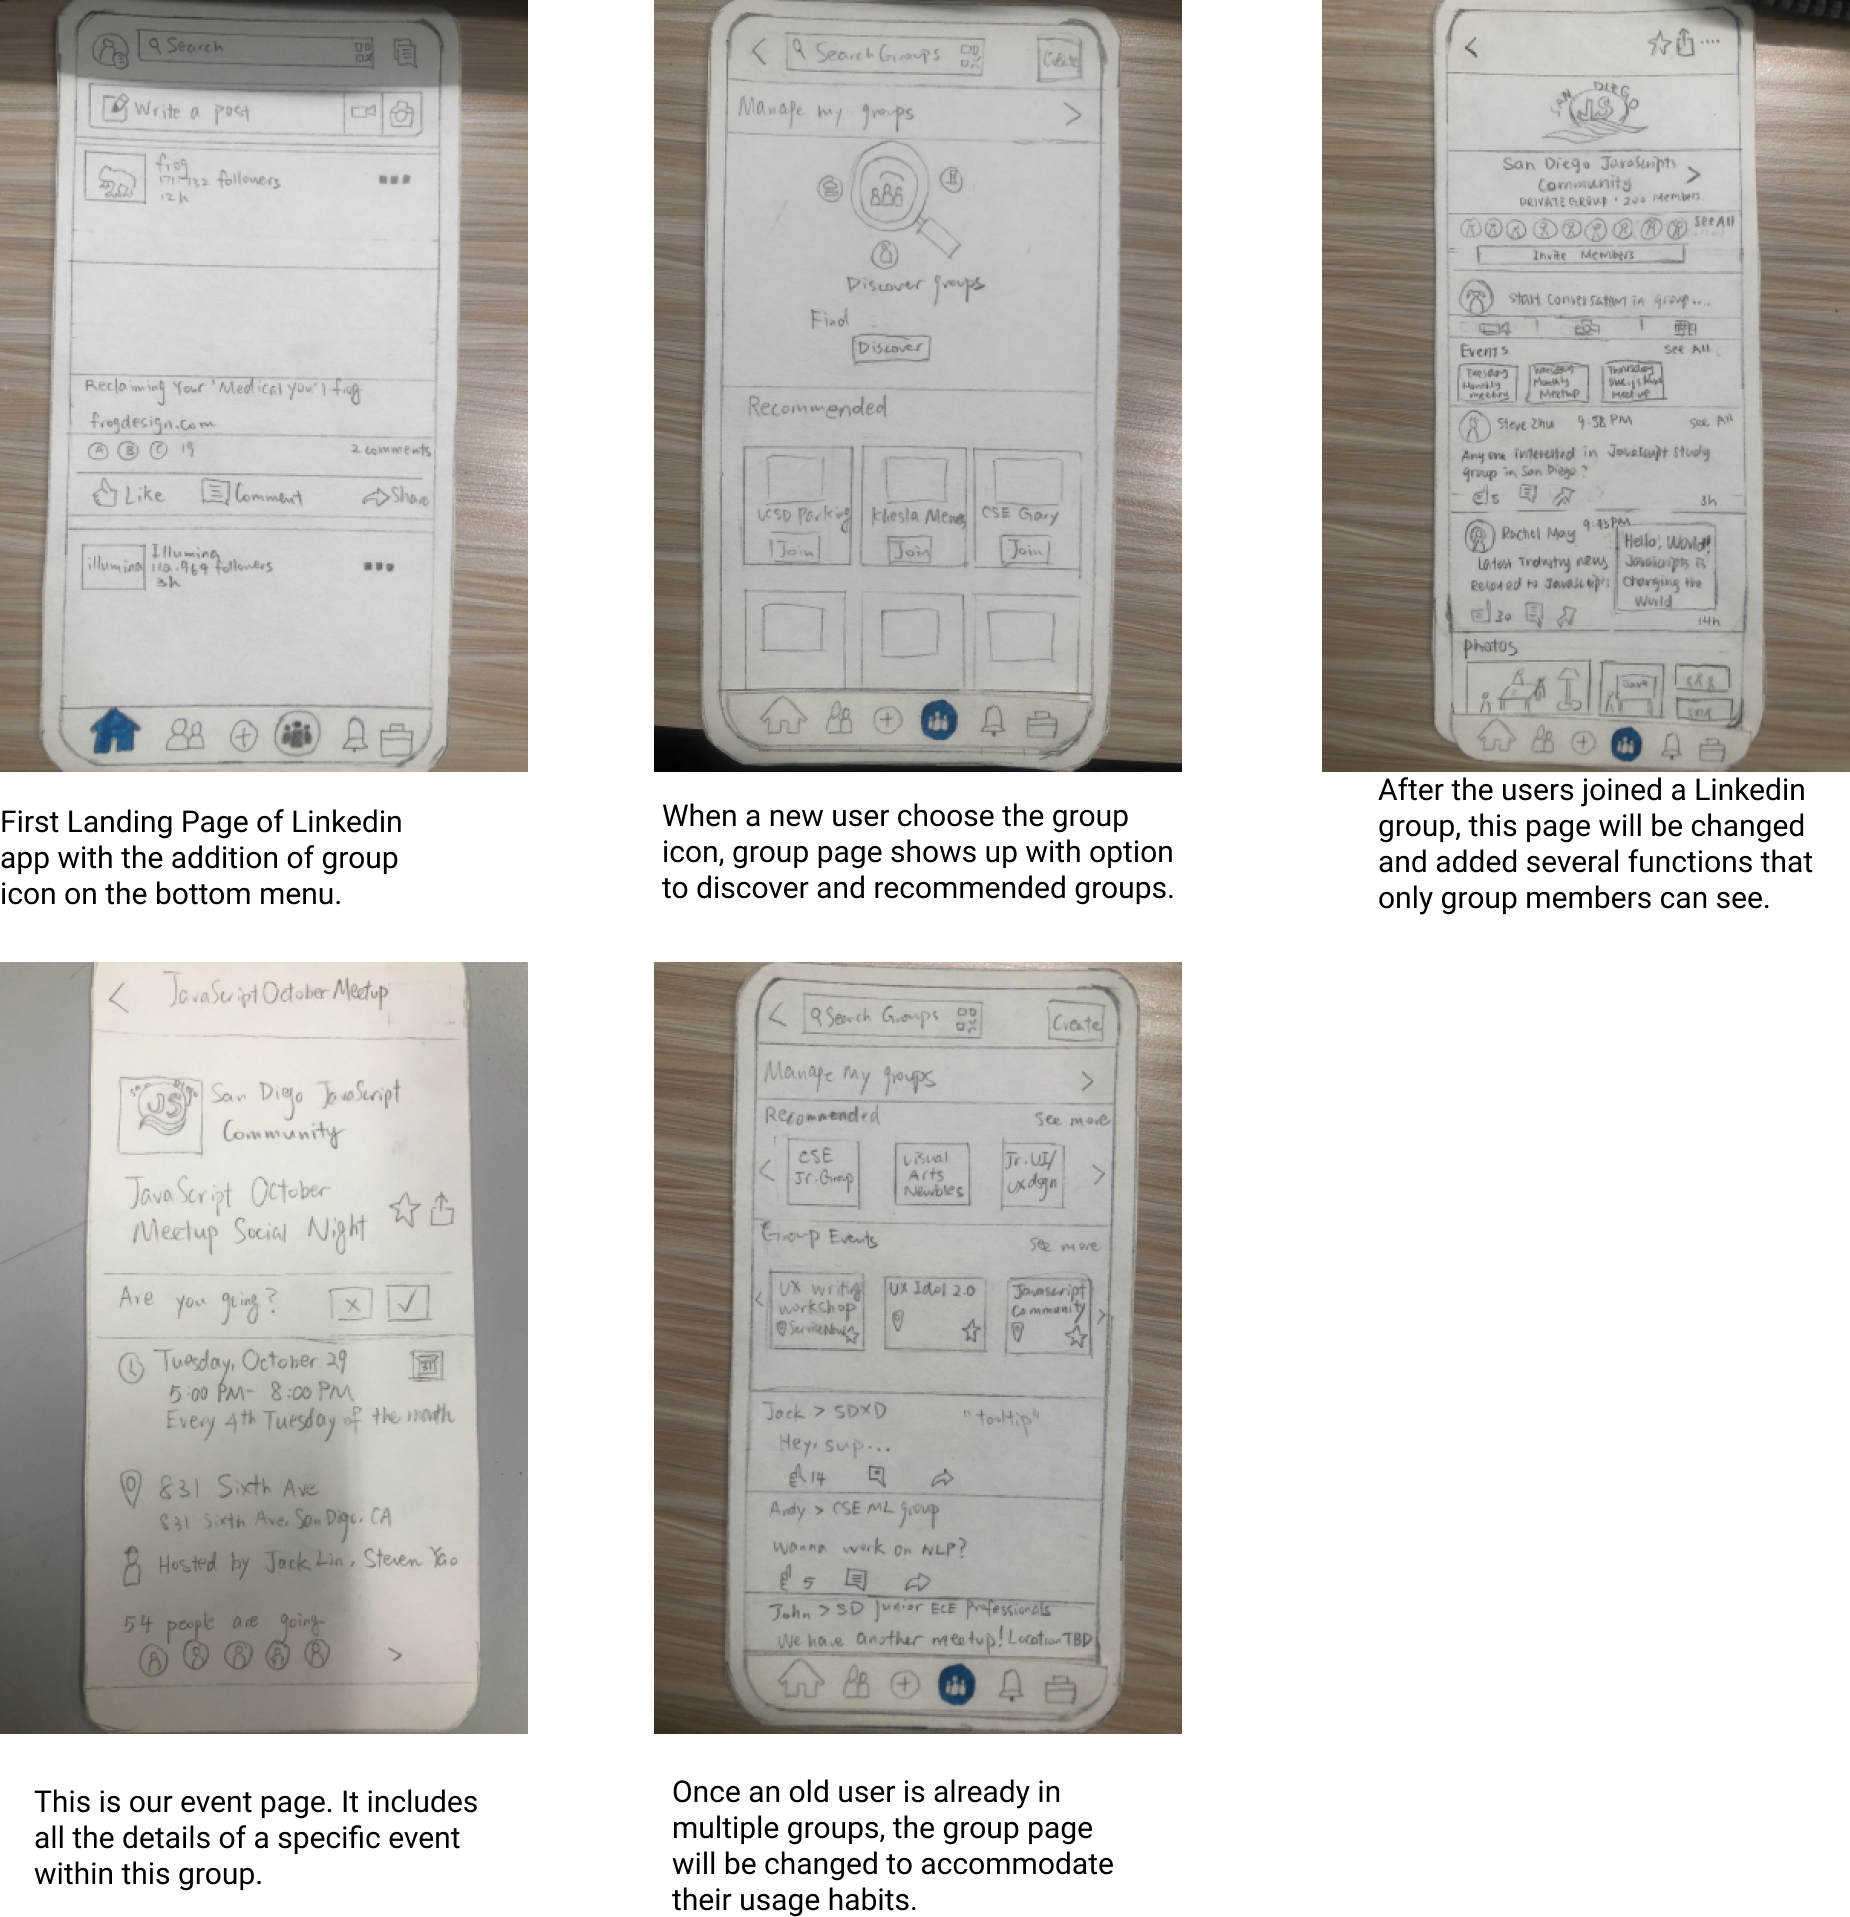 Search
Write a post
frog
171-132 followers
12h
Reclaiming Your 'Medical you' | frog
frogdesign.com
A B C 19
2 comments
Like Comment Share
illumina
Illumina
112.969 followers
3h
First Landing Page of Linkedin
app with the addition of group
icon on the bottom menu.
Search Groups
Create
Manage my groups >
Discover groups
Find
Discover
Recommended
UCSD Parking
Khosla CSE Gary
Join Join Join
When a new user choose the group
icon, group page shows up with option
to discover and recommended groups.
SAN DIEGO
JS
San Diego JavaScripts
Community
PRIVATE GROUP · 200 Members
See All
Invite Members
Start Conversation in group....
Events See All
Tuesday
Monthly
meeting
Monthly
Meetup
Thursday
Meet up
Steve Zhu 9:58 PM See All
Any one interested in Javascript Study
group in San Diego?
5
3h
Rachel May 9:43 PM
Latest Industry news
Related to Javascripts
Hello, World!
Javascripts is
Changing the
World
30
14h
Photos
Java
After the users joined a Linkedin
group, this page will be changed
and added several functions that
only group members can see.
JavaScript October Meetup
San Diego
JS
San Diego JavaScript
Community
JavaScript October
Meetup Social Night
Are you going? X
Tuesday, October 29
31
5:00 PM- 8:00 PM
Every 4th Tuesday of the month
831 Sixth Ave
831 Sixth Ave. San Digo. CA
Hosted by Jack Lin, Steven Yao
54 people are going
This is our event page. It includes
all the details of a specific event
within this group.
Search Groups
Create
Manage My groups >
Recommended See more
CSE
Jr. Group
Visual
Arts
Newbies
Jr. UI/
UX dsgn
Group Events See more
UX writing
workshop
ServiceNow
UX Idol 2.0
Javascript
Community
Jack > SDXD "tooltip"
Hey, sup...
14
Andy > CSE ML group
Wanna work on NLP?
5
John > SD Junior ECE Professionals
We have another meetup! Location TBD
Once an old user is already in
multiple groups, the group page
will be changed to accommodate
their usage habits.